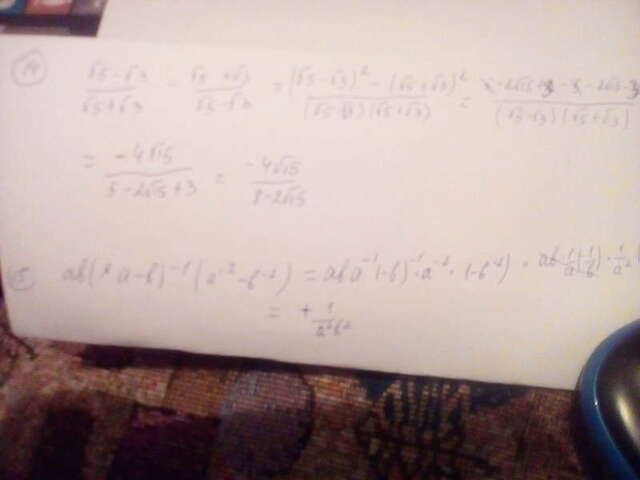 14 (√5-√3)/(√5+√3) - (√5+√3)/(√5-√3) = ((√5-√3)² - (√5+√3)²)/((√5-√3)(√5+√3)) = -2√15 - -2√15-3/((√5-√3)(√5+√3))
= -4√15/(5-2√15+3) = -4√15/(8-2√15)
ab( a-b)⁻¹(a⁻²-b⁻²) = ab a⁻¹(-b)⁻¹·a⁻²·(-b⁻²) = ab·1/a(-1/b)·1/a²
= + 1/(a²b²)